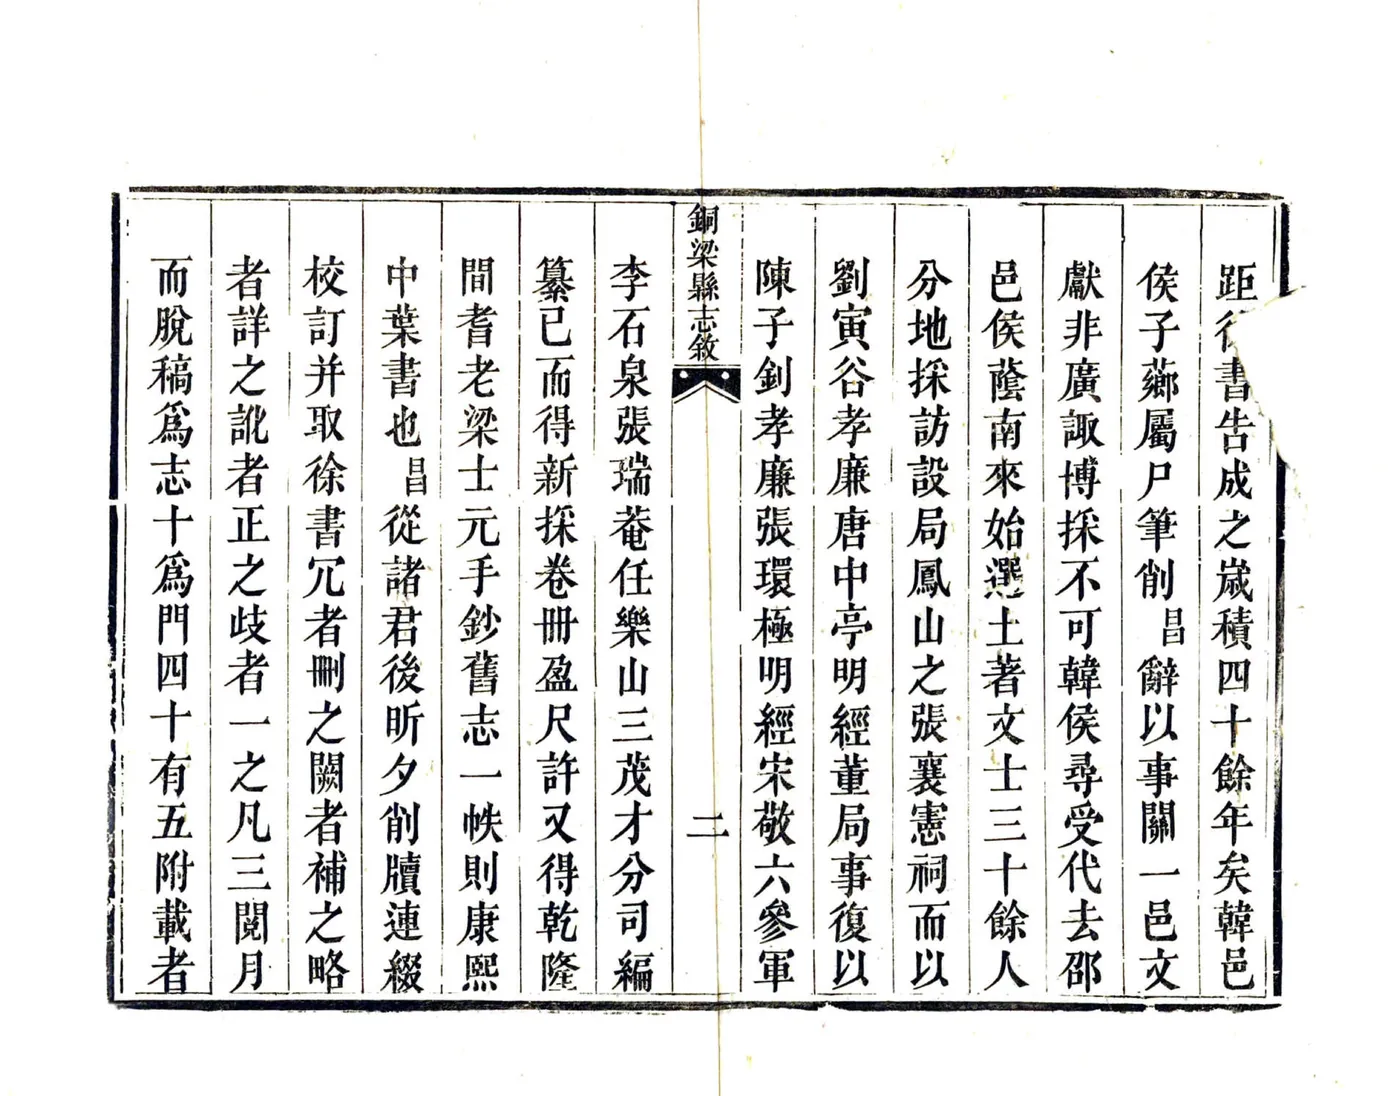 距徐書告成之歲積四十餘年矣韓邑
侯子薌屬尸筆削昌辭以事關一邑文
獻非廣諏博採不可韓侯尋受代去邵
邑侯蔭南來始選土著文士三十餘人
分地採訪設局鳳山之張襄憲祠而以
劉寅谷孝廉唐中亭明經董局事復以
陳子釗孝廉張環極明經宋敬六參軍
銅梁縣志敘
二
李石泉張瑞菴任樂山三茂才分司編
纂已而得新採卷冊盈尺許又得乾隆
間耆老梁士元手鈔舊志一帙則康熙
中葉書也昌從諸君後昕夕削牘連綴
校訂并取徐書冗者刪之闕者補之略
者詳之訛者正之歧者一之凡三閱月
而脫稿爲志十爲門四十有五附載者